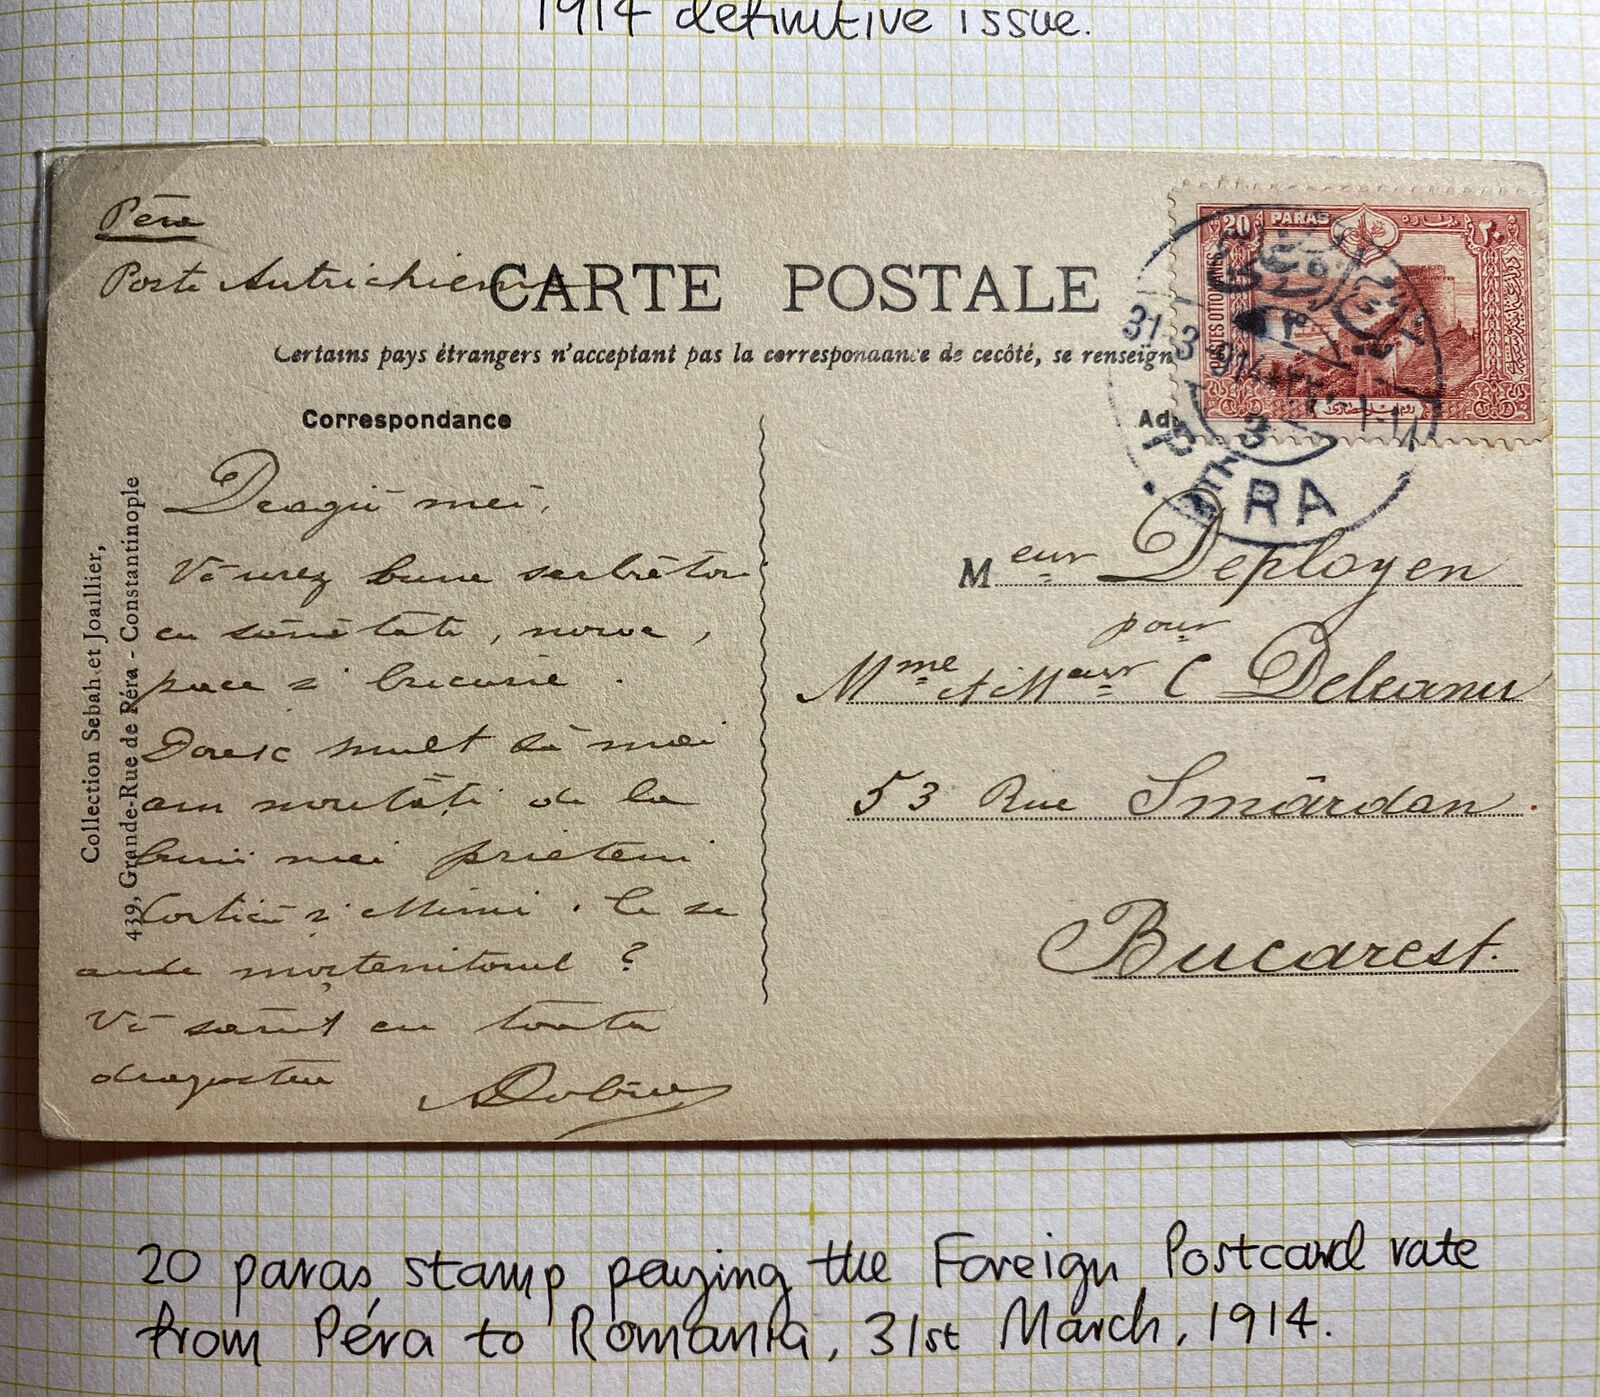 1914 definitive issue.
Péra
Poste Autrichienne
CARTE POSTALE
Certains pays étrangers n'acceptant pas la correspondance de cecôté, se renseign
Correspondance
Collection Sebah et Joaillier,
439, Grande-Rue de Péra - Constantinople
Dragii mei,
Vă urez bune sărbători
cu sănătate, noroc,
pace și bucurie.
Doresc mult să mai
am noutăți de la
bunii mei prieteni
și Mimi. Ce se
aude moștenitorul ?
Vă sărut cu toată
dragostea
20 PARAS
POSTES OTTOMANES
٢٠
31 3 914
3
PERA
Meur Deployen
pour
Mme et Meur C Deleanu
53 Rue Smârdan.
Bucarest.
20 paras stamp paying the Foreign Postcard rate
from Péra to Romania, 31st March, 1914.